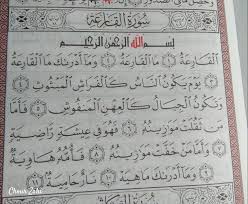 سُورَةُ القَارِعَةِ
بِسْمِ اللَّهِ الرَّحْمَٰنِ الرَّحِيمِ
الْقَارِعَةُ ١ مَا الْقَارِعَةُ ٢ وَمَا أَدْرَىٰكَ مَا الْقَارِعَةُ
٣ يَوْمَ يَكُونُ النَّاسُ كَالْفَرَاشِ الْمَبْثُوثِ ٤
وَتَكُونُ الْجِبَالُ كَالْعِهْنِ الْمَنفُوشِ ٥ فَأَمَّا
مَن ثَقُلَتْ مَوَٰزِينُهُ ٦ فَهُوَ فِي عِيشَةٍ رَّاضِيَةٍ
٧ وَأَمَّا مَنْ خَفَّتْ مَوَٰزِينُهُ ٨ فَأُمُّهُ هَاوِيَةٌ
٩ وَمَا أَدْرَىٰكَ مَا هِيَهْ ١٠ نَارٌ حَامِيَةٌ ١١
سُورَةُ